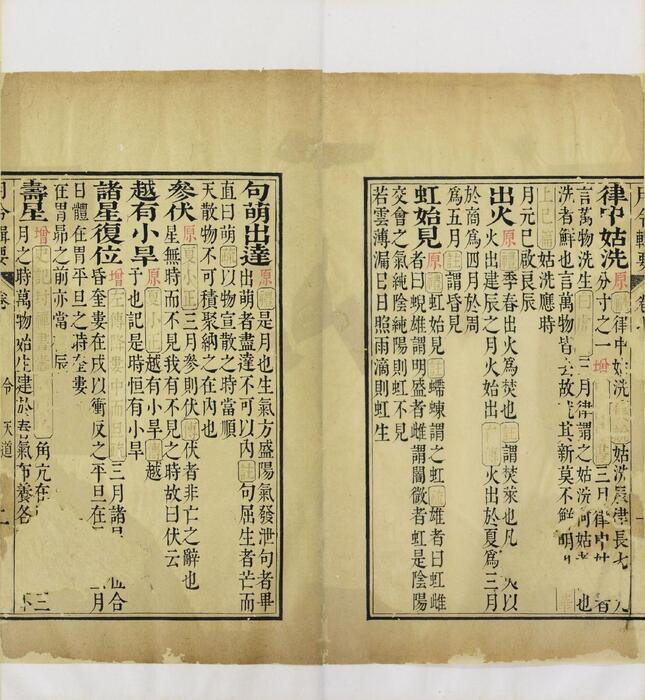 月令輯要
律中姑洗 原 禮 律中姑洗 姑洗辰律長七 九
分寸之一 增 書 三月律中 者
言萬物洗生 三月律謂之姑洗何姑者 也
洗者鮮也言萬物皆去故就其新莫不鮮明
上巳篇 姑洗應時
月元巳啟良辰
出火 原 季春出火為焚也 註 謂焚萊也凡 火以
火出建辰之月火始出 左傳 火出於夏為三月
於商為四月於周
為五月 註 謂昏見
虹始見 原 禮 虹始見 註 螮蝀謂之虹 疏 雄者曰虹雌
者曰蜺雄謂明盛者雌謂闇微者虹是陰陽
交會之氣純陰純陽則虹不見
若雲薄漏日日照雨滴則虹生
句萌出達 原 禮 是月也生氣方盛陽氣發泄句者畢
出萌者盡達不可以內 註 句屈生者芒而
直曰萌 疏 以物宣散之時當順
天散物不可積聚納之在內也
參伏 原 夏小正 三月參則伏 傳 伏者非亡之辭也
星無時而不見我有不見之時故曰伏云
越有小旱 原 夏小正 越有小旱 傳 越
于也記是時恒有小旱
諸星復位 增 左傳 降婁中而旦 疏 三月諸星 合
昏奎婁在戌以衝反之平旦在 月
日體在胃平旦之時奎婁
在胃昴之前亦當 辰
壽星 增 史記 角亢在 三
月之時萬物始生建於春氣布養各
月令輯要 卷 令 天道 二